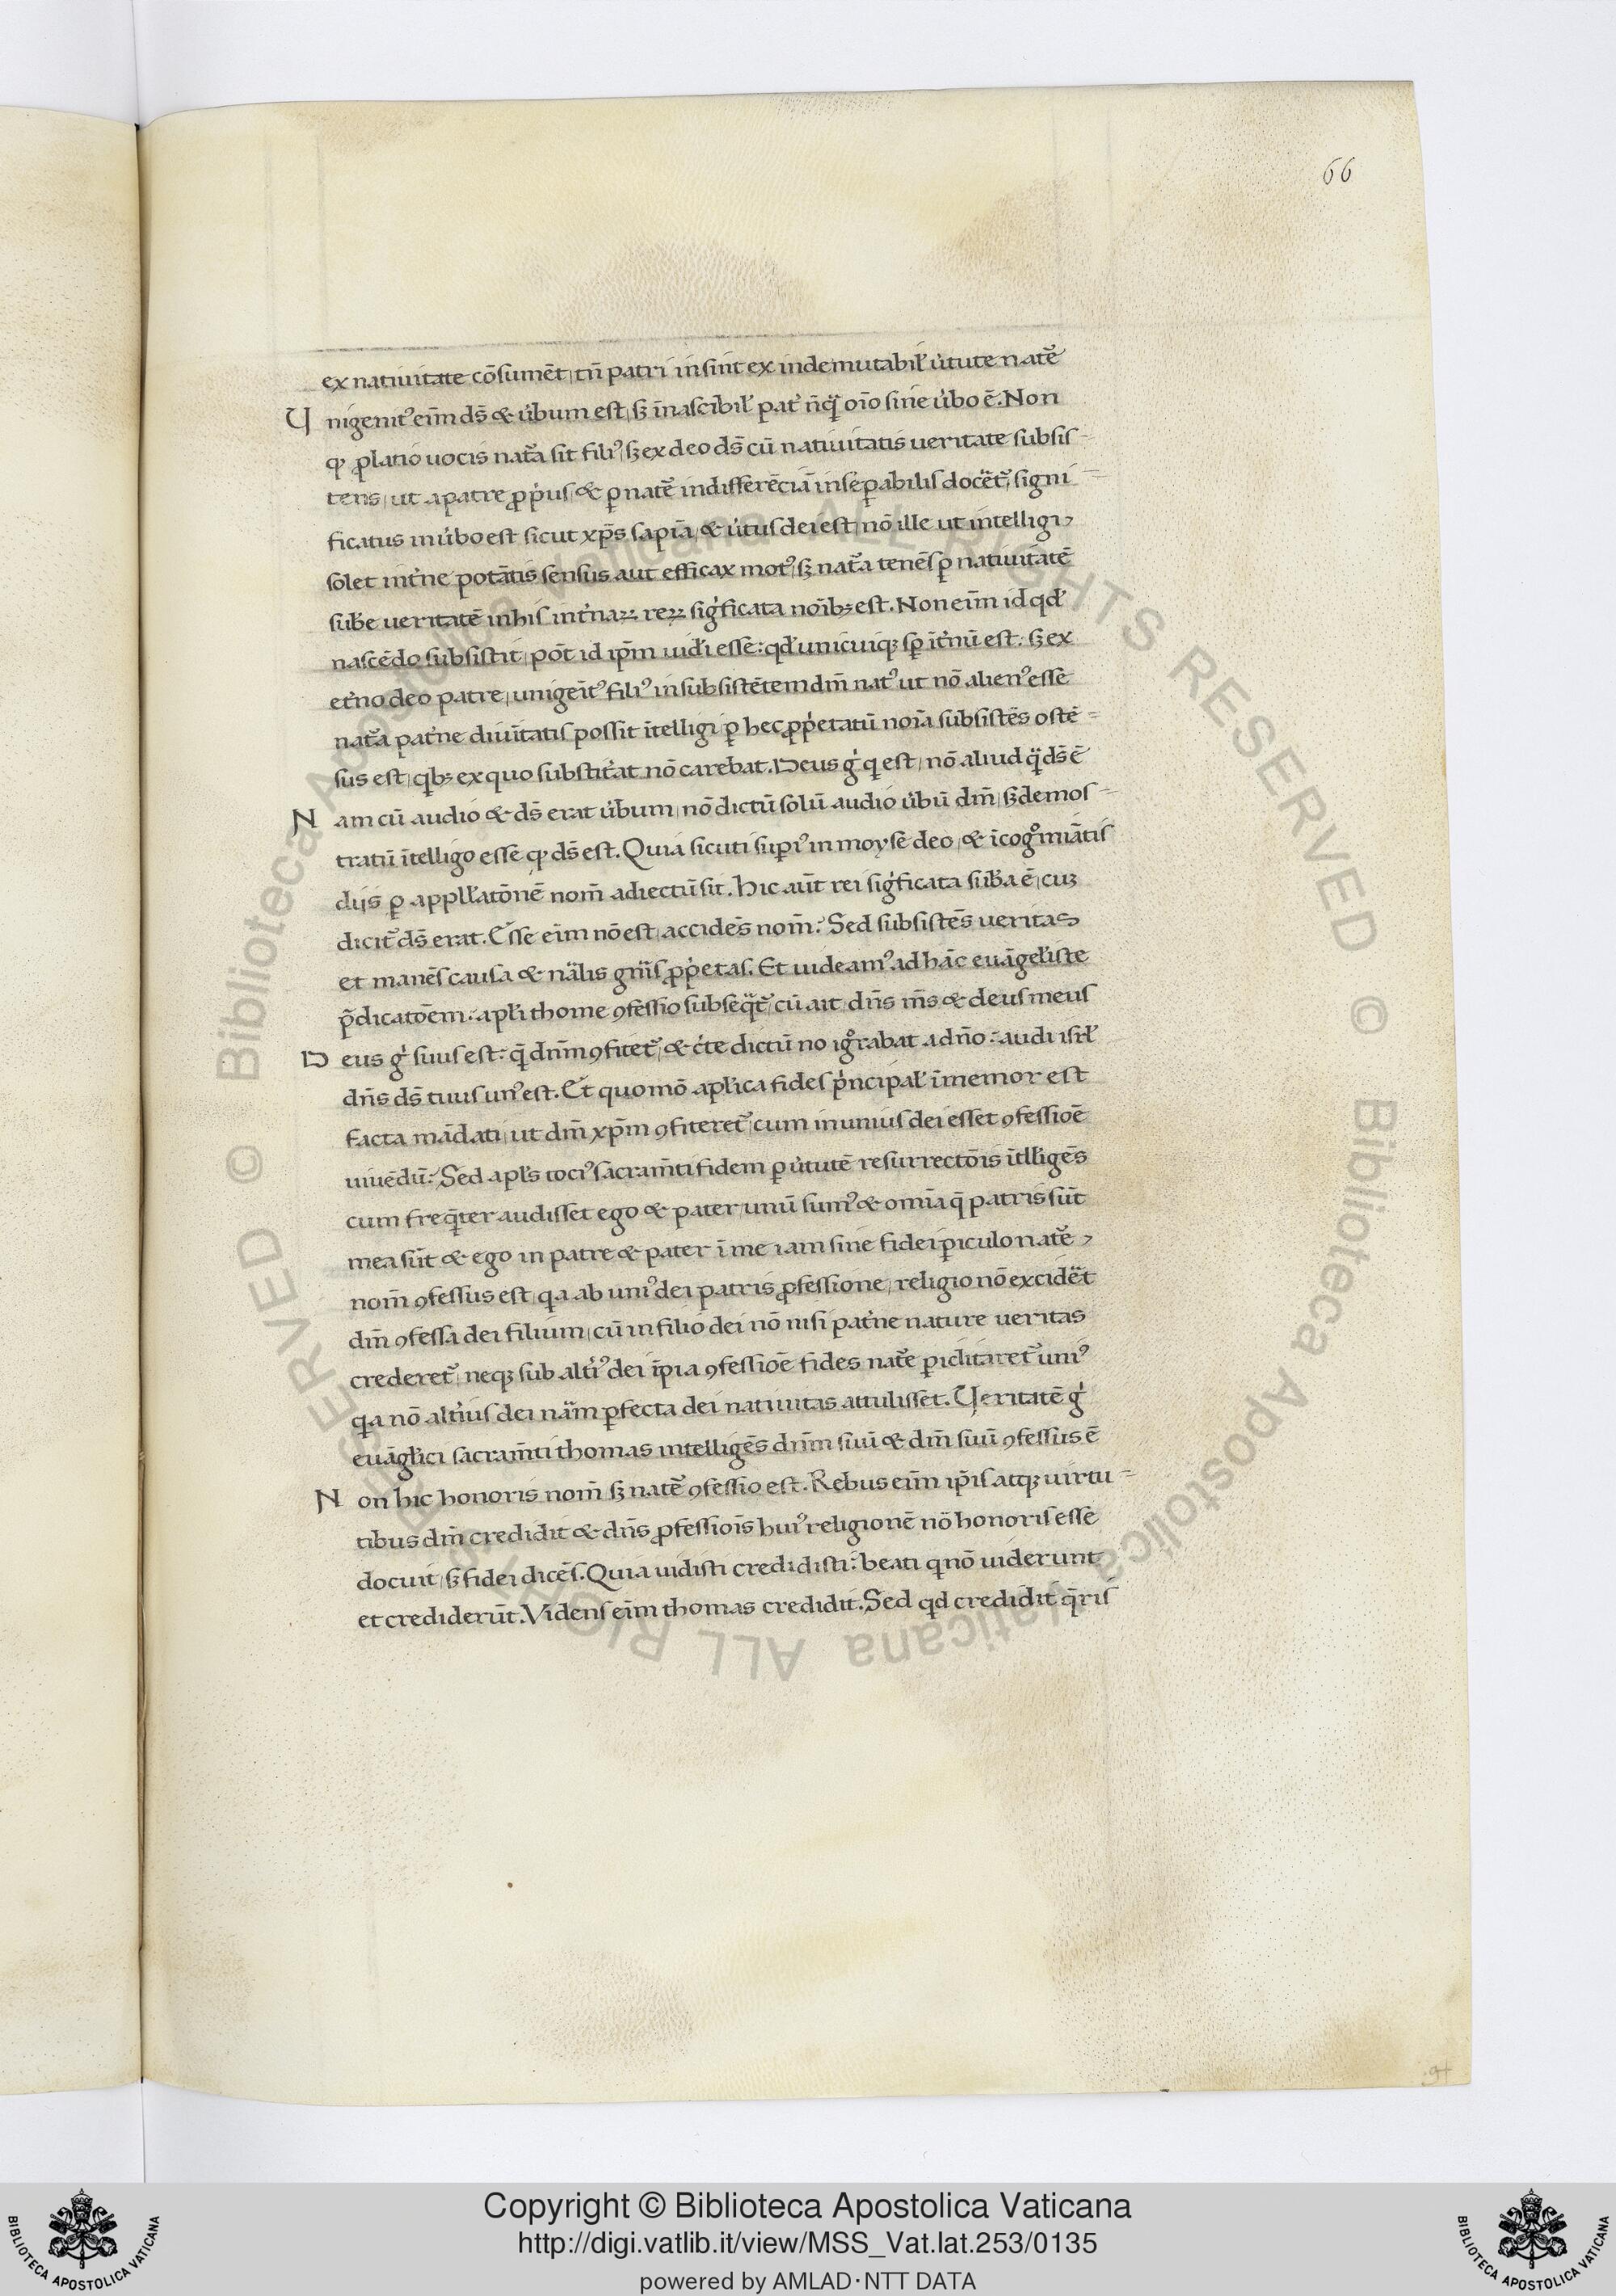 66
ex natiuitate cōsumēt, tn̄ patri insint ex indemutabil' u'tute natē
Unigenit' eīm ds̄ & u'bum est, sȝ īnascibil' pat' nq̄ oīo sine u'bo ē. Non
q ꝓlatio uocis nat̄a sit fili', sȝ ex deo ds̄ cū natiuitatis ueritate subsis-
tens, ut a patre ꝓp'us, & ꝑ natē indifferēciā inseꝑabilis docēt', signi-
ficatus in u'bo est sicut xp̄s sapīa, & u'tus dei est, nō ille ut intelligi
solet int'ne potātis sensus aut efficax mot', sȝ nat̄a tenēs ꝑ natiuitatē
sub'e ueritatē in his int'naꝝ reꝝ sig'ficata noībȝ est. Non eīm id qd'
nascēdo subsistit, pōt id ip̄m uid'i esse: qd' unicuiqȝ sꝑ īt'nū est. sȝ ex
et'no deo patre, unigenīt' fili' in subsistētem dm̄ nat' ut nō alien' esse
nat̄a pat'ne diuītatis possit ītelligi ꝑ hec ꝓp'etatū noīa subsistēs ostē-
sus est, qibȝ ex quo substit'at nō carebat. Deus g' q est, nō aliud q̄ ds̄ ē
Nam cū audio & ds̄ erat u'bum, nō dictū solū audio u'bū dm̄, sȝ demos-
tratū ītelligo esse q ds̄ est. Quia sicuti supi' in moyse deo, & īcog°miātis
dijs ꝑ appll'atōnē nom̄ adiectū sit. hic aūt rei sig'ficata sub'a ē, cuȝ
dicit' ds̄ erat. Esse eīm nō est, accidēs nom̄: Sed subsistēs ueritas
et manēs causa & nālis gn̄is ꝓp'etas. Et uideam' ad hāc euāgeliste
p̄dicatōem: apl'i thome ꝯfessio subseqt', cū ait, dn̄s m̄s & deus meus
Deus g' suus est: q̄ dn̄m ꝯfitet', & c'te dictū no ig°rabat a dn̄o: audi isrl'
dn̄s ds̄ tuus un' est. Et quomō aplica fides p'ncipal' īmemor est
facta mādati, ut dm̄ xp̄m ꝯfiteret', cum in unius dei esset ꝯfessioē
uiuēdū: Sed apl's toci' sacram̄ti fidem ꝑ u'tutē resurrectōis ītlligēs
cum freq̄ter audisset ego & pater, unū sum' & omīa q̄ patris sūt
mea sūt & ego in patre & pater ī me iam sine fidei ꝑiculo natē
nom̄ ꝯfessus est, qa ab uni' dei patris ꝓfessione, religio nō excidēt
dm̄ ꝯfessa dei filium, cū in filio dei nō nisi pat'ne nature ueritas
crederet', neqȝ sub alt'i' dei īpia ꝯfessioē fides natē ꝑiclitaret' uni'
qa nō alt'ius dei nām ꝑfecta dei natiuitas attulisset. Ueritatē g'
euāgl'ici sacram̄ti thomas intelligēs dn̄m suū & dm̄ suū ꝯfessus ē
Non hic honoris nom̄ sȝ natē ꝯfessio est. Rebus eīm ip̄is atqȝ uirtu-
tibus dm̄ credidit & dn̄s ꝓfessiois hui' religionē nō honoris esse
docuit, sȝ fidei dicēs. Quia uidisti credidisti: beati q nō uiderunt
et crediderūt. Videns eīm thomas credidit. Sed qd credidit q̄ris
Copyright © Biblioteca Apostolica Vaticana
http://digi.vatlib.it/view/MSS_Vat.lat.253/0135
powered by AMLAD·NTT DATA